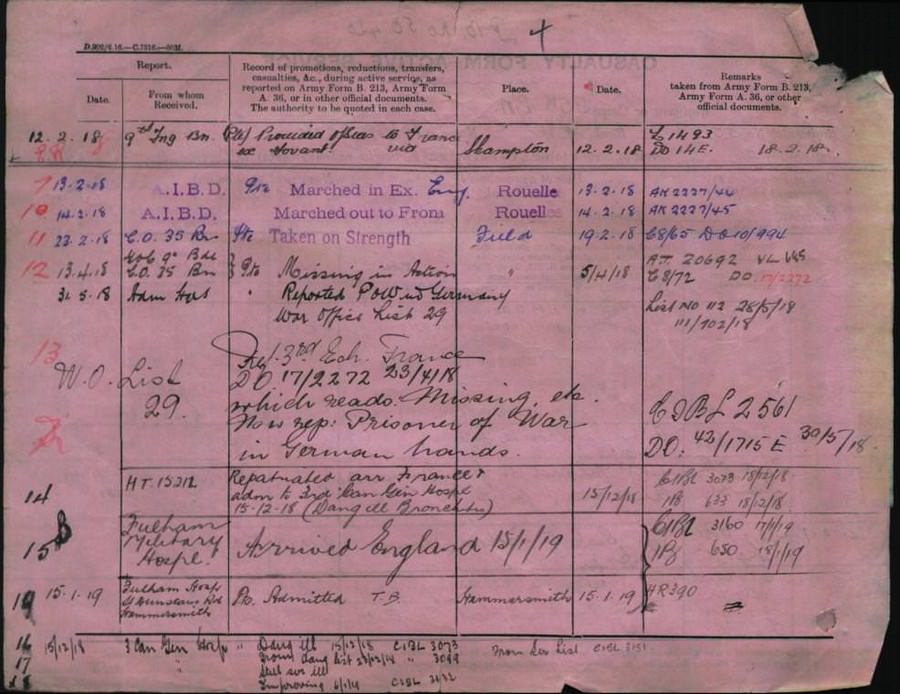 4
D.902/6.16.—C.7316.—60M.
Report.
Date.
From whom Received.
Record of promotions, reductions, transfers, casualties, &c., during active service, as reported on Army Form B. 213, Army Form A. 36, or in other official documents. The authority to be quoted in each case.
Place.
Date.
Remarks taken from Army Form B. 213, Army Form A. 36, or other official documents.
12.2.18 9th Trng Bn Proceeded o'seas to France
via S'hampton 12.2.18 DO 14E. 18.2.18
13.2.18 A.I.B.D. Pte Marched in Ex. Eng. Rouelle 13.2.18 AK 2227/44
10 14.2.18 A.I.B.D. Marched out to From Rouelle 14.2.18 AK 2227/45
11 23.2.18 C.O. 35 Bn Pte Taken on Strength Field 19.2.18 C8/65 DO 10/994
GOC 9th Bde A.T. 20692
12 13.4.18 C.O. 35 Bn Pte Missing in Action " 5/4/18 C8/72 DO 17/2272
31.5.18 Adm Hqs " Reported POW in Germany List No 112 28/5/18
War Office List 29
13
Ref. 3rd Ech. France
W.O. List DO 17/2272 23/4/18
29. which reads: Missing, etc.
Now rep: Prisoner of War
in German hands.
CDBL 2561
DO. 43/1715E 30/5/18.
14 Repatriated arr France &
adm to 3rd Can Gen Hospl 15/12/18
15-12-18 (Dang ill Bronchitis)
C1BL 3073 18/12/18
633 18/12/18
15 Fulham Military Hospl. Arrived England 15/1/19
C1BL 3160 17/1/19
650 18/1/19
19 15.1.19 Fulham Hosp
St Dunstans Rd
Hammersmith
Admitted T.B. Hammersmith 15.1.19 HR390
16 15/12/18 3 Can Gen Hosp " Dang ill 15/12/18 C1BL 3073
17 " From dang list 3089 From Ser List C1BL 3151
Still ser ill
18 Improving C1BL 3132